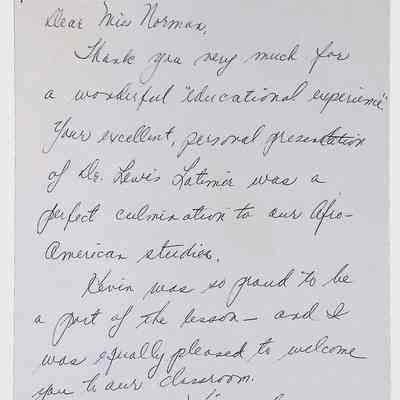 Dear Miss Norman,
Thank you very much for
a wonderful "educational experience"
Your excellent, personal presentation
of Dr. Lewis Latimer was a
perfect culmination to our Afro-
American studies.
Kevin was so proud to be
a part of the lesson — and I
was equally pleased to welcome
you to our classroom.